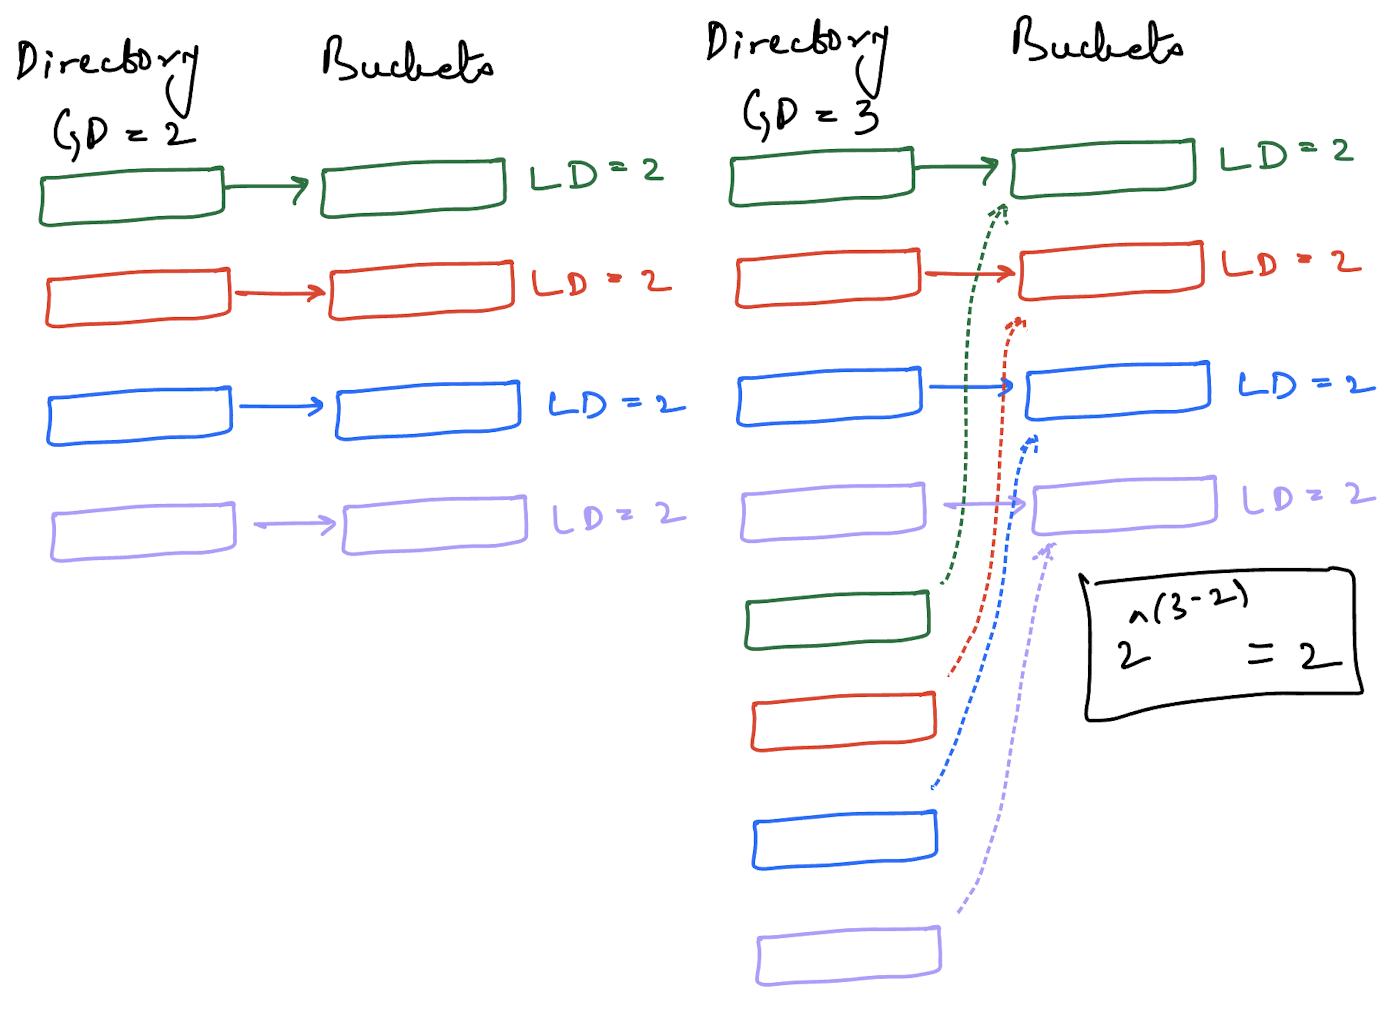 Directory Buckets
GD = 2
LD = 2
LD = 2
LD = 2
LD = 2
Directory Buckets
GD = 3
LD = 2
LD = 2
LD = 2
LD = 2
2^(3-2) = 2